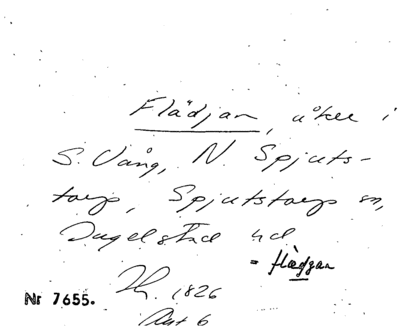 Flädjan, åker i
S. Vång, N. Spjuts-
torp, Spjutstorps sn,
Ingelstad hd
= flædjan
Nr 7655. 1826
Akt 6